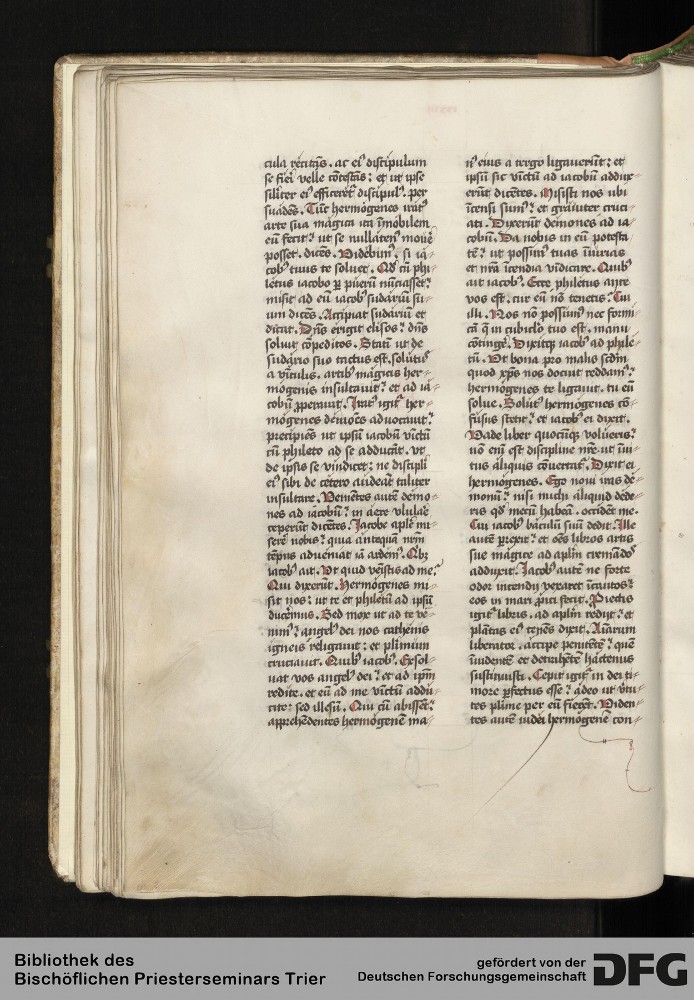 cula recitās. ac ei' discipulum
se fieri velle cōtestās; et ut ipse
siliter ei' efficeret' discipul'. per
suadēs. Tūc hermogenes irat'
arte sua magica ita īmobilem
eū fecit: ut se nullaten' mouē
posset. dicēs. Videbim'. si ia-
cob' tuus te soluet. Qd' cū phi-
letus iacobo p puerū nūciasset:
misit ad eū iacob' sudariū su-
um dicēs. Accipiat sudariū et
dicat. Dn̄s erigit elisos: dn̄s
soluit cōpeditos. Statī ut de
sudario suo tactus est. solut'
a vīculis. artib' magicis her-
mogenis insultauit: et ad ia-
cobū pperauit. Irat' igit' her-
mogenes demōes aduocauit:
precipiēs ut ipsū iacobū vīctū
cū phileto ad se adducāt. ut
de ipsis se vindicet: ne discipli
ei' sibi de cetero audeāt taliter
insultare. Veniētes autē demo-
nes ad iacobū: in aere vlulae
ceperūt dicētes. Iacobe apl'e mi-
sere nobis: quia antequā nrm
tēpus adueniat iā ardem'. Qbz
iacob' ait. Vt quid venistis ad me:
Qui dixerūt. Hermogenes mi-
sit nos: ut te et philetū ad ipsū
ducēmus. Sed mox ut ad te ve-
nim': angel' dei nos cathenis
igneis religauit: et plimum
cruciauit. Quib' iacob'. Exsol-
uat vos angel' dei: et ad ipm
redite. et eū ad me vīctū addu-
cite: sed illesū. Qui cū abisset:
apprehēdentes hermogenē ma-
n' eius a tergo ligauerūt: et
ipsū sic vīctū ad iacobū addux-
erūt dicētes. Misisti nos ubi
īcensi sum': et grauiter cruci-
ati. Dixerūt demones ad ia-
cobū. Da nobis in eū potesta-
tē: ut possim' tuas īiurias
et nrā īcendia vīdicare. Quib'
ait iacob'. Ecce philetus ante
vos est. cur eū nō tenetis: Cui
illi. Nos nō possum' nec formi-
cā q̄ in cubiclo tuo est. manu
cōtingē. Dixitqz iacob' ad phile-
tū. Vt bona pro malis scdm
quod xps nos docuit reddam':
hermogenes te ligauit. tu eū
solue. Solut' hermogenes cō-
fusus stetit: et iacob' ei dixit.
Vade liber quocūqz volueris:
nō em̄ est discipline nre ut inui-
tus aliquis cōuertat'. Dixit ei
hermogenes. Ego noui iras de-
monū: nisi michi aliquid dede-
ris qd' mecū habeā. occidēt me.
Cui iacob' baculū suū dedit. Ille
autē prexit: et oēs libros artis
sue magice ad aplm cremādos
adduxit. Iacob' autē ne forte
odor incendij vexaret īcautos:
eos in mari pici fecit. Piectis
igit' libris. ad aplm redijt: et
plātas ei' tenēs dixit. Aīarum
liberator. accipe penitētē: quē
īuidentē et detrahētē hactenus
sustinuisti. Cepit igit' in dei ti-
more pfectus esse: adeo ut vitu-
tes plime per eū fierēt. Viden-
tes autē iudei hermogenē con-
Bibliothek des
Bischöflichen Priesterseminars Trier
gefördert von der
Deutschen Forschungsgemeinschaft
DFG